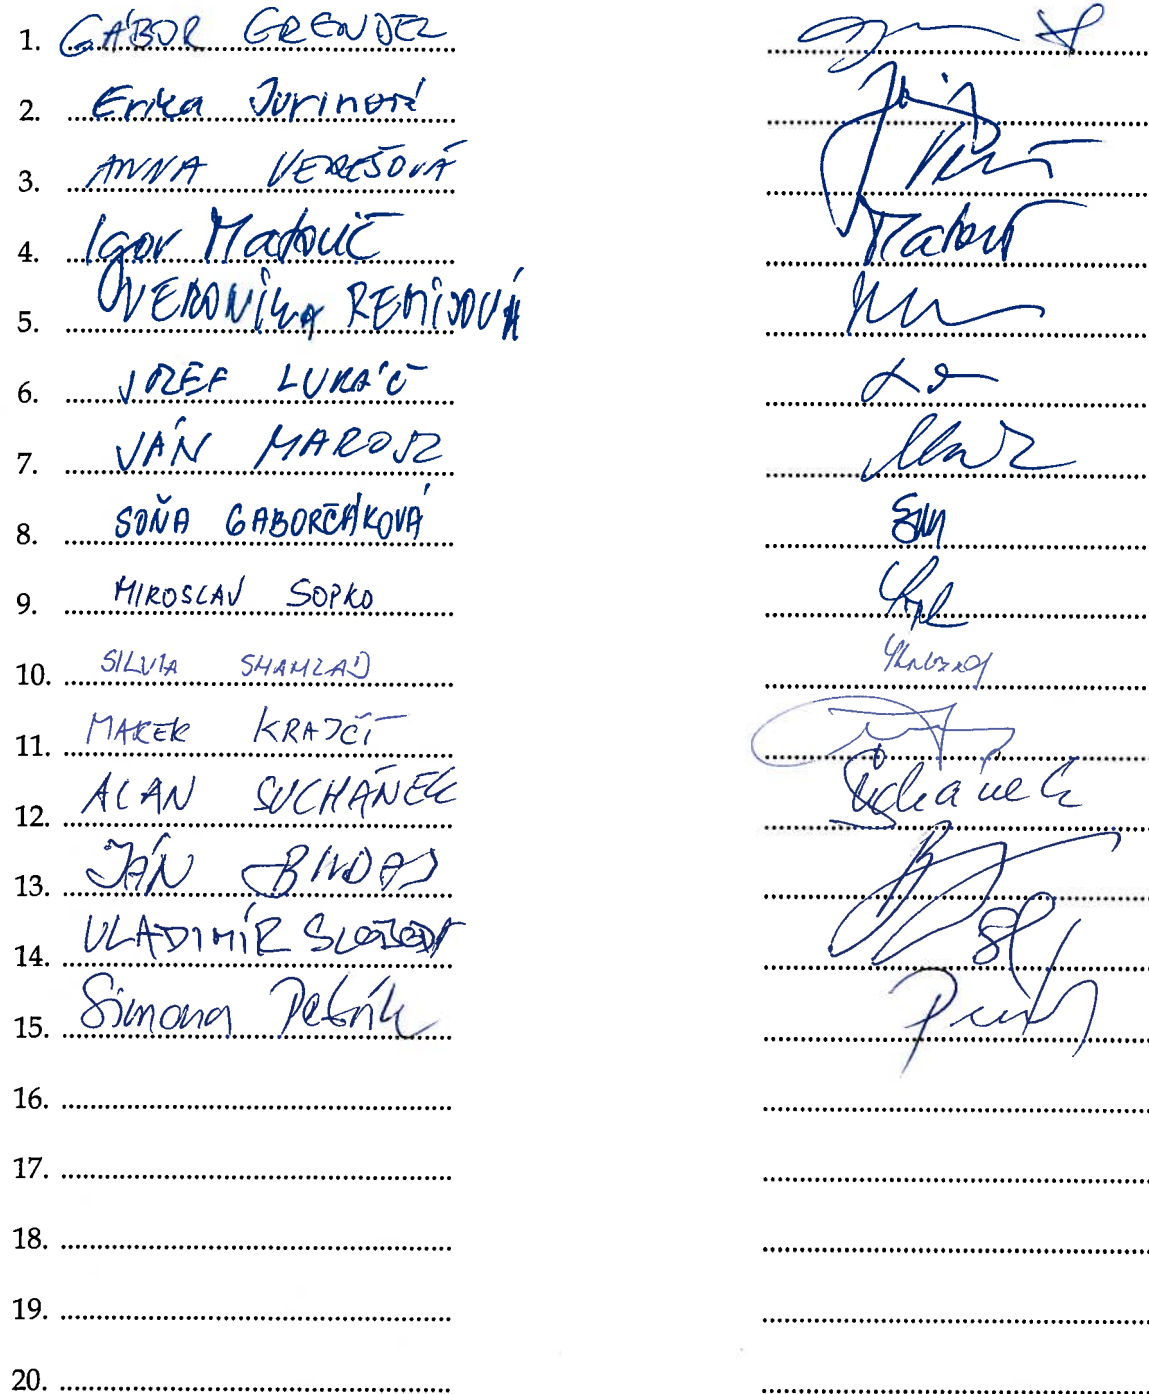 1. GÁBOR GRENDEL
2. Erika Jurinová
3. ANNA VEREŠOVÁ
4. Igor Matovič Matovič
5. VERONIKA REMIŠOVÁ
6. JOZEF LUKÁČ
7. JÁN MAROSZ
8. SOŇA GABORČÁKOVÁ
9. MIROSLAV SOPKO
10. SILVIA SHAHZAD
11. MAREK KRAJČÍ
12. ALAN SUCHÁNEK Suchánek
13. JÁN BUDAJ
14. VLADIMÍR SLOBODA
15. Simona Petrík
16.
17.
18.
19.
20.